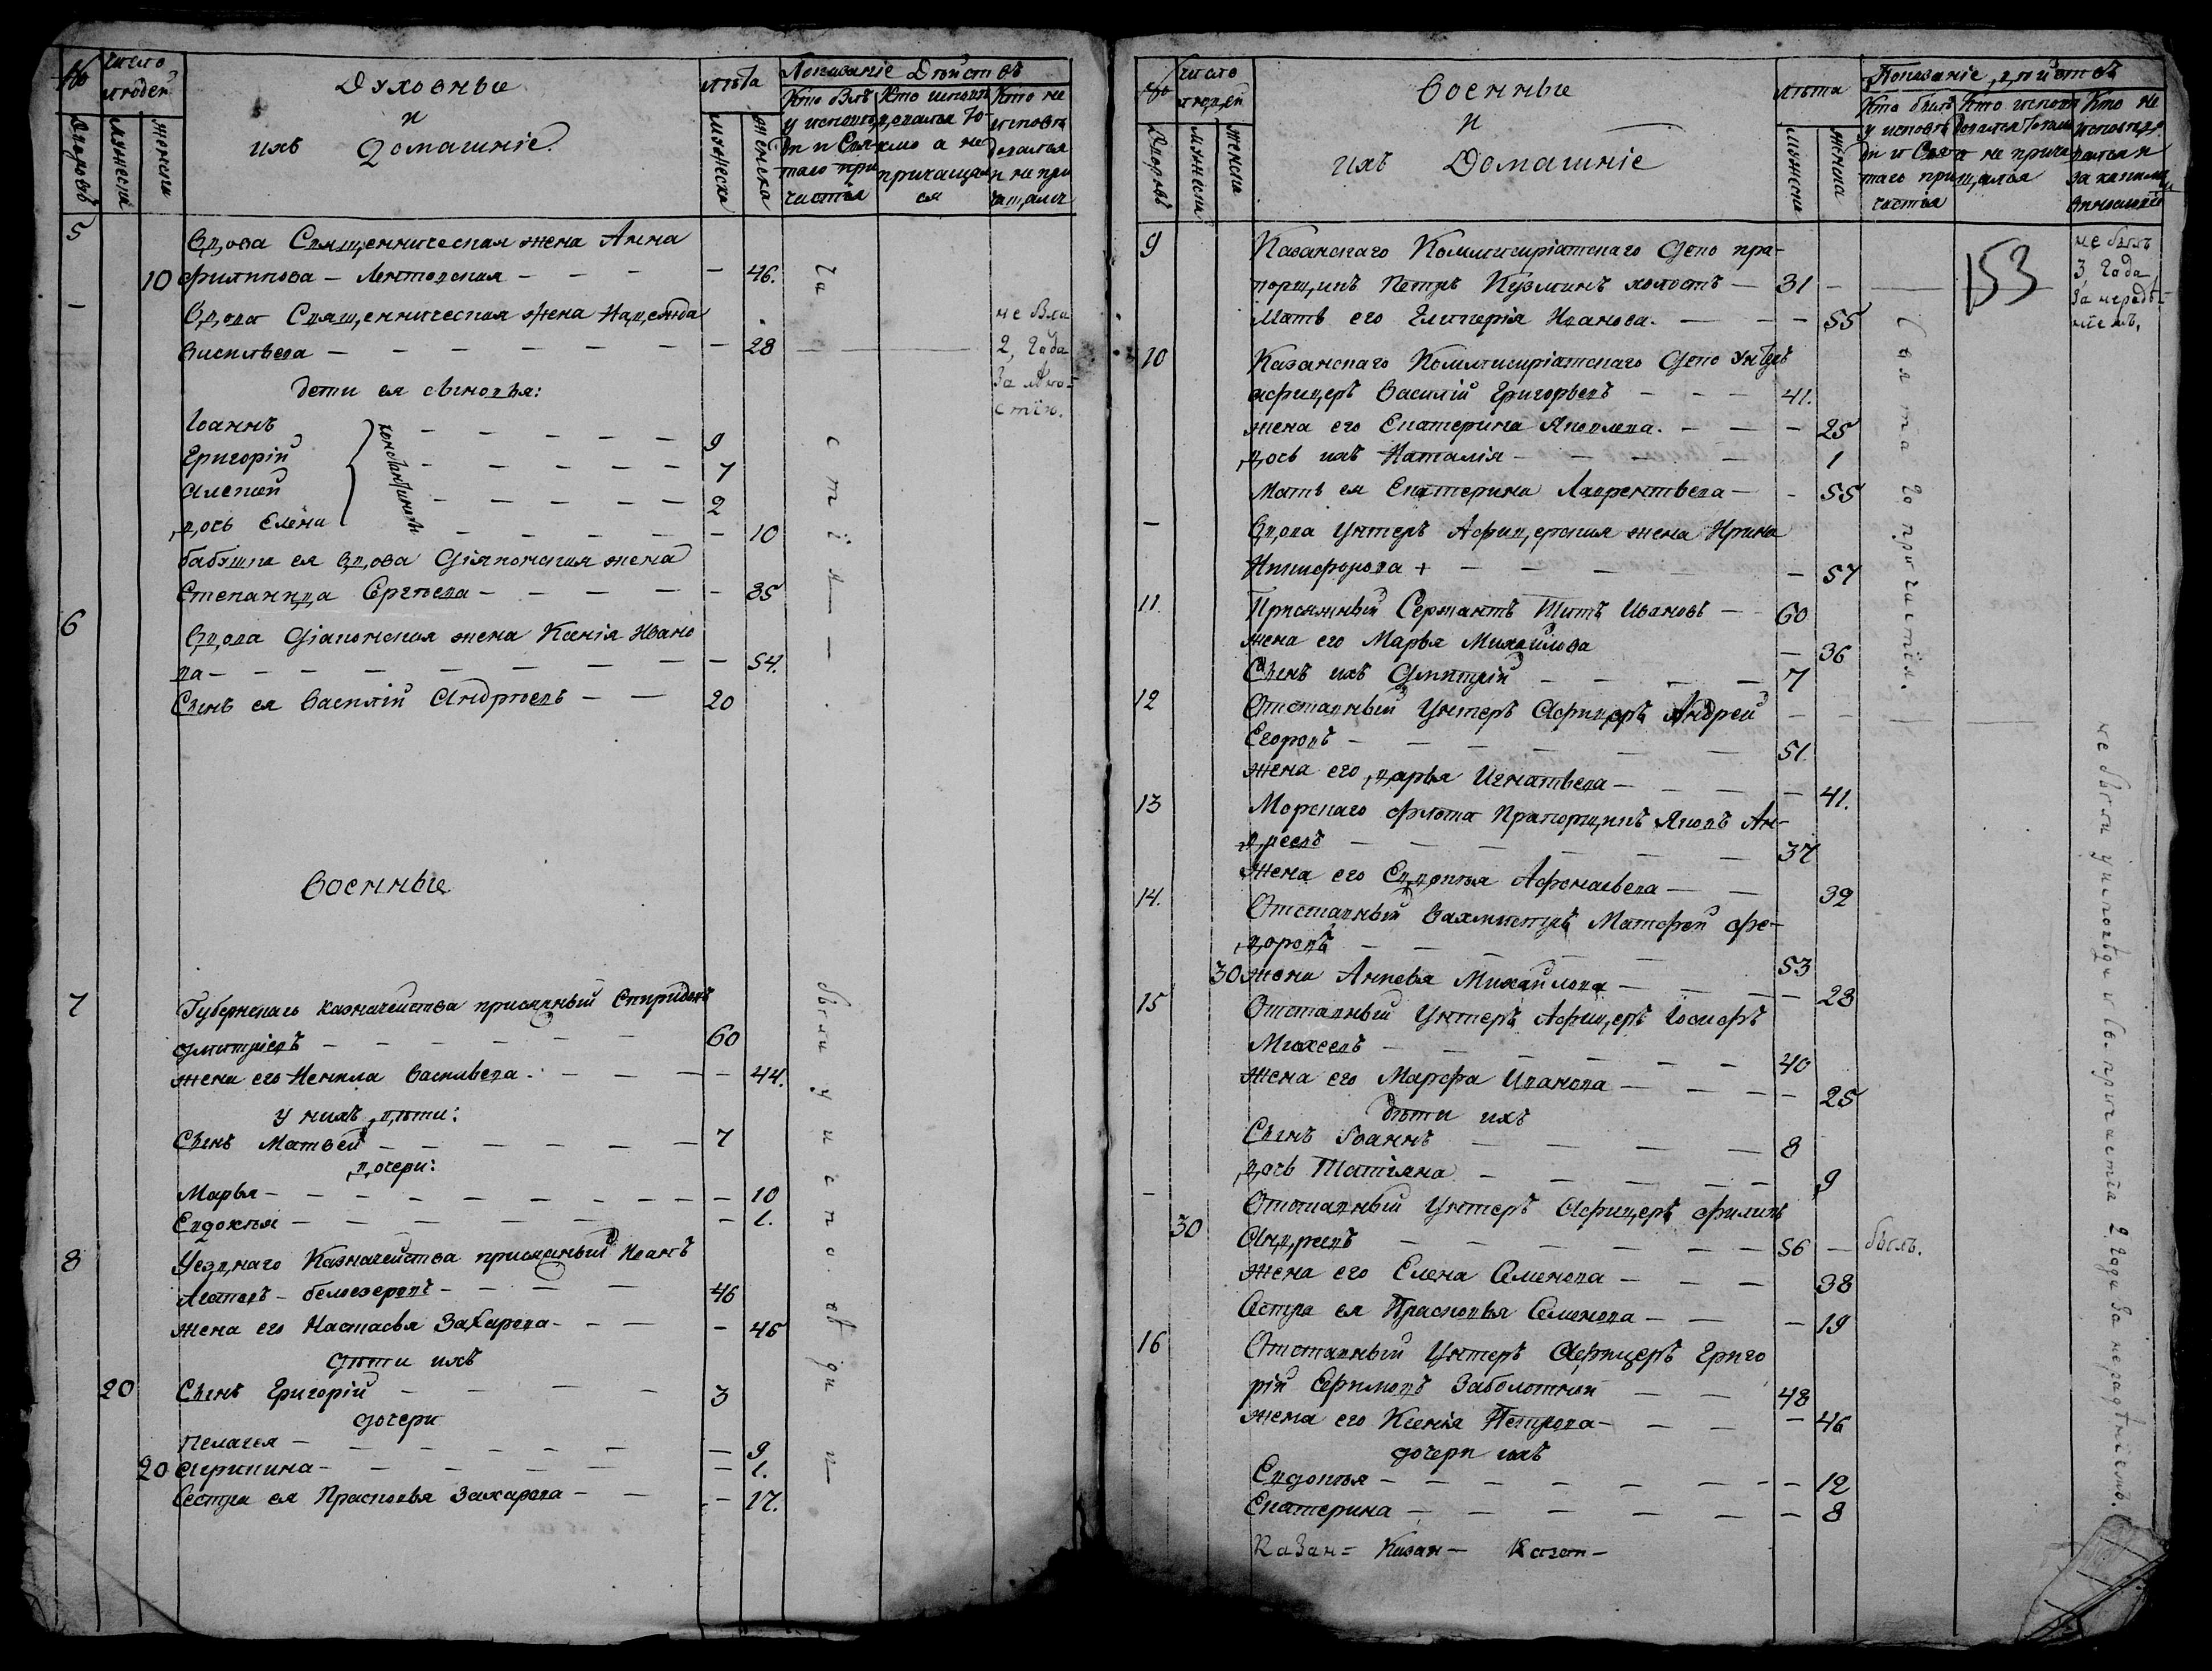 №
число
людей
Духовные
и
ихъ Домашніе.
лѣта
Показаніе Дѣйствъ
дворовъ
мужеска
женска
мужеска
женска
Кто былъ
у исповѣ
ди и Свя
таго при
частія
Кто исповѣ
дывался то-
кмо а не
причащал
ся
Кто не
исповѣ
довался
и не при
чащался
5
Вдова Священническая жена Анна
10 Филиппова – Лентовская – – – – 46.
– Вдова Священническая жена Надежда
Васильева – – – – – – 28 –
не была
2, Года
За
дети ея сыновья:
Іоаннъ – – – – – 9
Григорій – – – – – 7
Алексей – – – – 2
дочь Елена – – – – – 10
Константиновы
бабушка ея вдова Діяконская жена
Степанида Сергеева – – – – – 85
6 Вдова Діаконская жена Ксенія Ивано
ва – – – – – – – 54.
Сынъ ея Василій Андреевъ – – 20
частія
Военные
7 Губернскаго казначейства присяжный Спиридонъ
Дмитріевъ – – – – – 60
жена его Ненила Васильева – – – – 44.
у нихъ дѣти:
Сынъ Матвей – – – – – 7
дочери:
Марья – – – – – – – – 10
Евдокія – – – – – – 1.
8 Уезднаго Казначейства присяжный Иванъ
белозеровъ – – – – 46
жена его Настасья Захарова – – – – 45
дѣти ихъ
20 Сынъ Григорій – – – – 3
дочери
Пелагея – – – – – – – 9
20 Акулина – – – – – – 1.
Сестра ея Прасковья Захарова – – – 17.
были у исповѣди и
№
число
людей
Военные
и
ихъ Домашніе
лѣта
Показаніе дѣйствъ
дворовъ
мужеска
женска
мужеска
женска
Кто былъ
у исповѣ
ди и Свя
таго при
частія
Кто исповѣ
довался токмо
а не прича
щался
Кто не
исповѣдо
вался и
за какимъ
9 Казанскаго Коммисиріатскаго Депо пра-
порщикъ Петръ Кузминъ холостъ – 31 –
153
не былъ
3 Года
За нерадѣ-
ніемъ.
Мать его Гликерія Иванова. – – – 55
10 Казанскаго Коммисиріатскаго Депо унтеръ
афицеръ Василій Григорьевъ – – – 41.
жена его Екатерина Яковлева. – – – 25
дочь ихъ Наталія – – – – 1
Мать ея Екатерина Лаврентьева – – 55
– Вдова Унтеръ Афицерская жена Ирина
Никифорова + – – – – – 57
11. Присяжный Сержантъ Титъ Ивановъ – – 60
жена его Марья Михайлова – 36
Сынъ ихъ Дмитрій – – – – 7
12 Отставный Унтеръ Афицеръ Андрей – – – –
Егоровъ – – – – – – 51.
жена его Дарья Игнатьева – – – – – 41.
13 Морскаго флота Прапорщикъ Яковъ Ан-
дреевъ – – – – – – 37
жена его Евдокія Афонасьева – – 32
14. Отставный Вахмистръ Матфей Фе-
доровъ – – – – – 53
30 жена Михайлова – – – – 28
15 Отставный Унтеръ Афицеръ Іосифъ
Михеевъ – – – – – – 40
жена его Марфа Иванова – – – – 25
дѣти ихъ
Сынъ Іоаннъ – – – – 8
дочь Татіана – – – – – 9
– Отставный Унтеръ Афицеръ Филипъ
30 Андреевъ – – – – – – 56 – былъ.
жена его Елена Семенова – – – 38
Сестра ея Прасковья Семенова – – – 19
16 Отставный Унтеръ Афицеръ Григо
рій Ефимовъ Заболотной – – 48
жена его Ксенія Петрова – – – – 46
дочери ихъ
Евдокія – – – – – – – 12
Екатерина – – – – – – 8
Казан= Казан– Казан–
Святаго причастія.
не были у исповѣди и Св. причастія 2 Года За нерадѣніемъ.